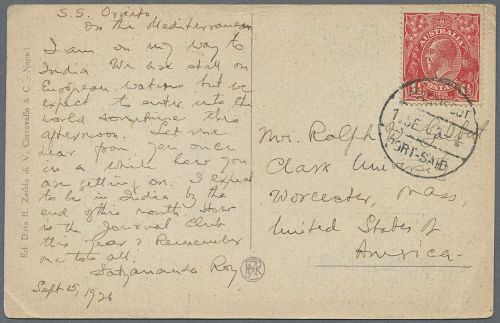 S.S. Orvieto
On the Mediterranean
I am on my way to
India. We are still on
European waters but we
expect to enter into the
world sometime this
afternoon. Let me
hear from you once
in a while how you
are getting on. I expect
to be in India by the
end of this month. How
is the Journal Club
this year? Remember
me to all.
Satyananda Roy.
Sept 15, 1926
Ed. Ditta R. Zedda di V. Carcavallo & C. - Napoli
AUSTRALIA
PORT-SAID
Mr. Ralph
Clark University
Worcester, Mass,
United States of
America.